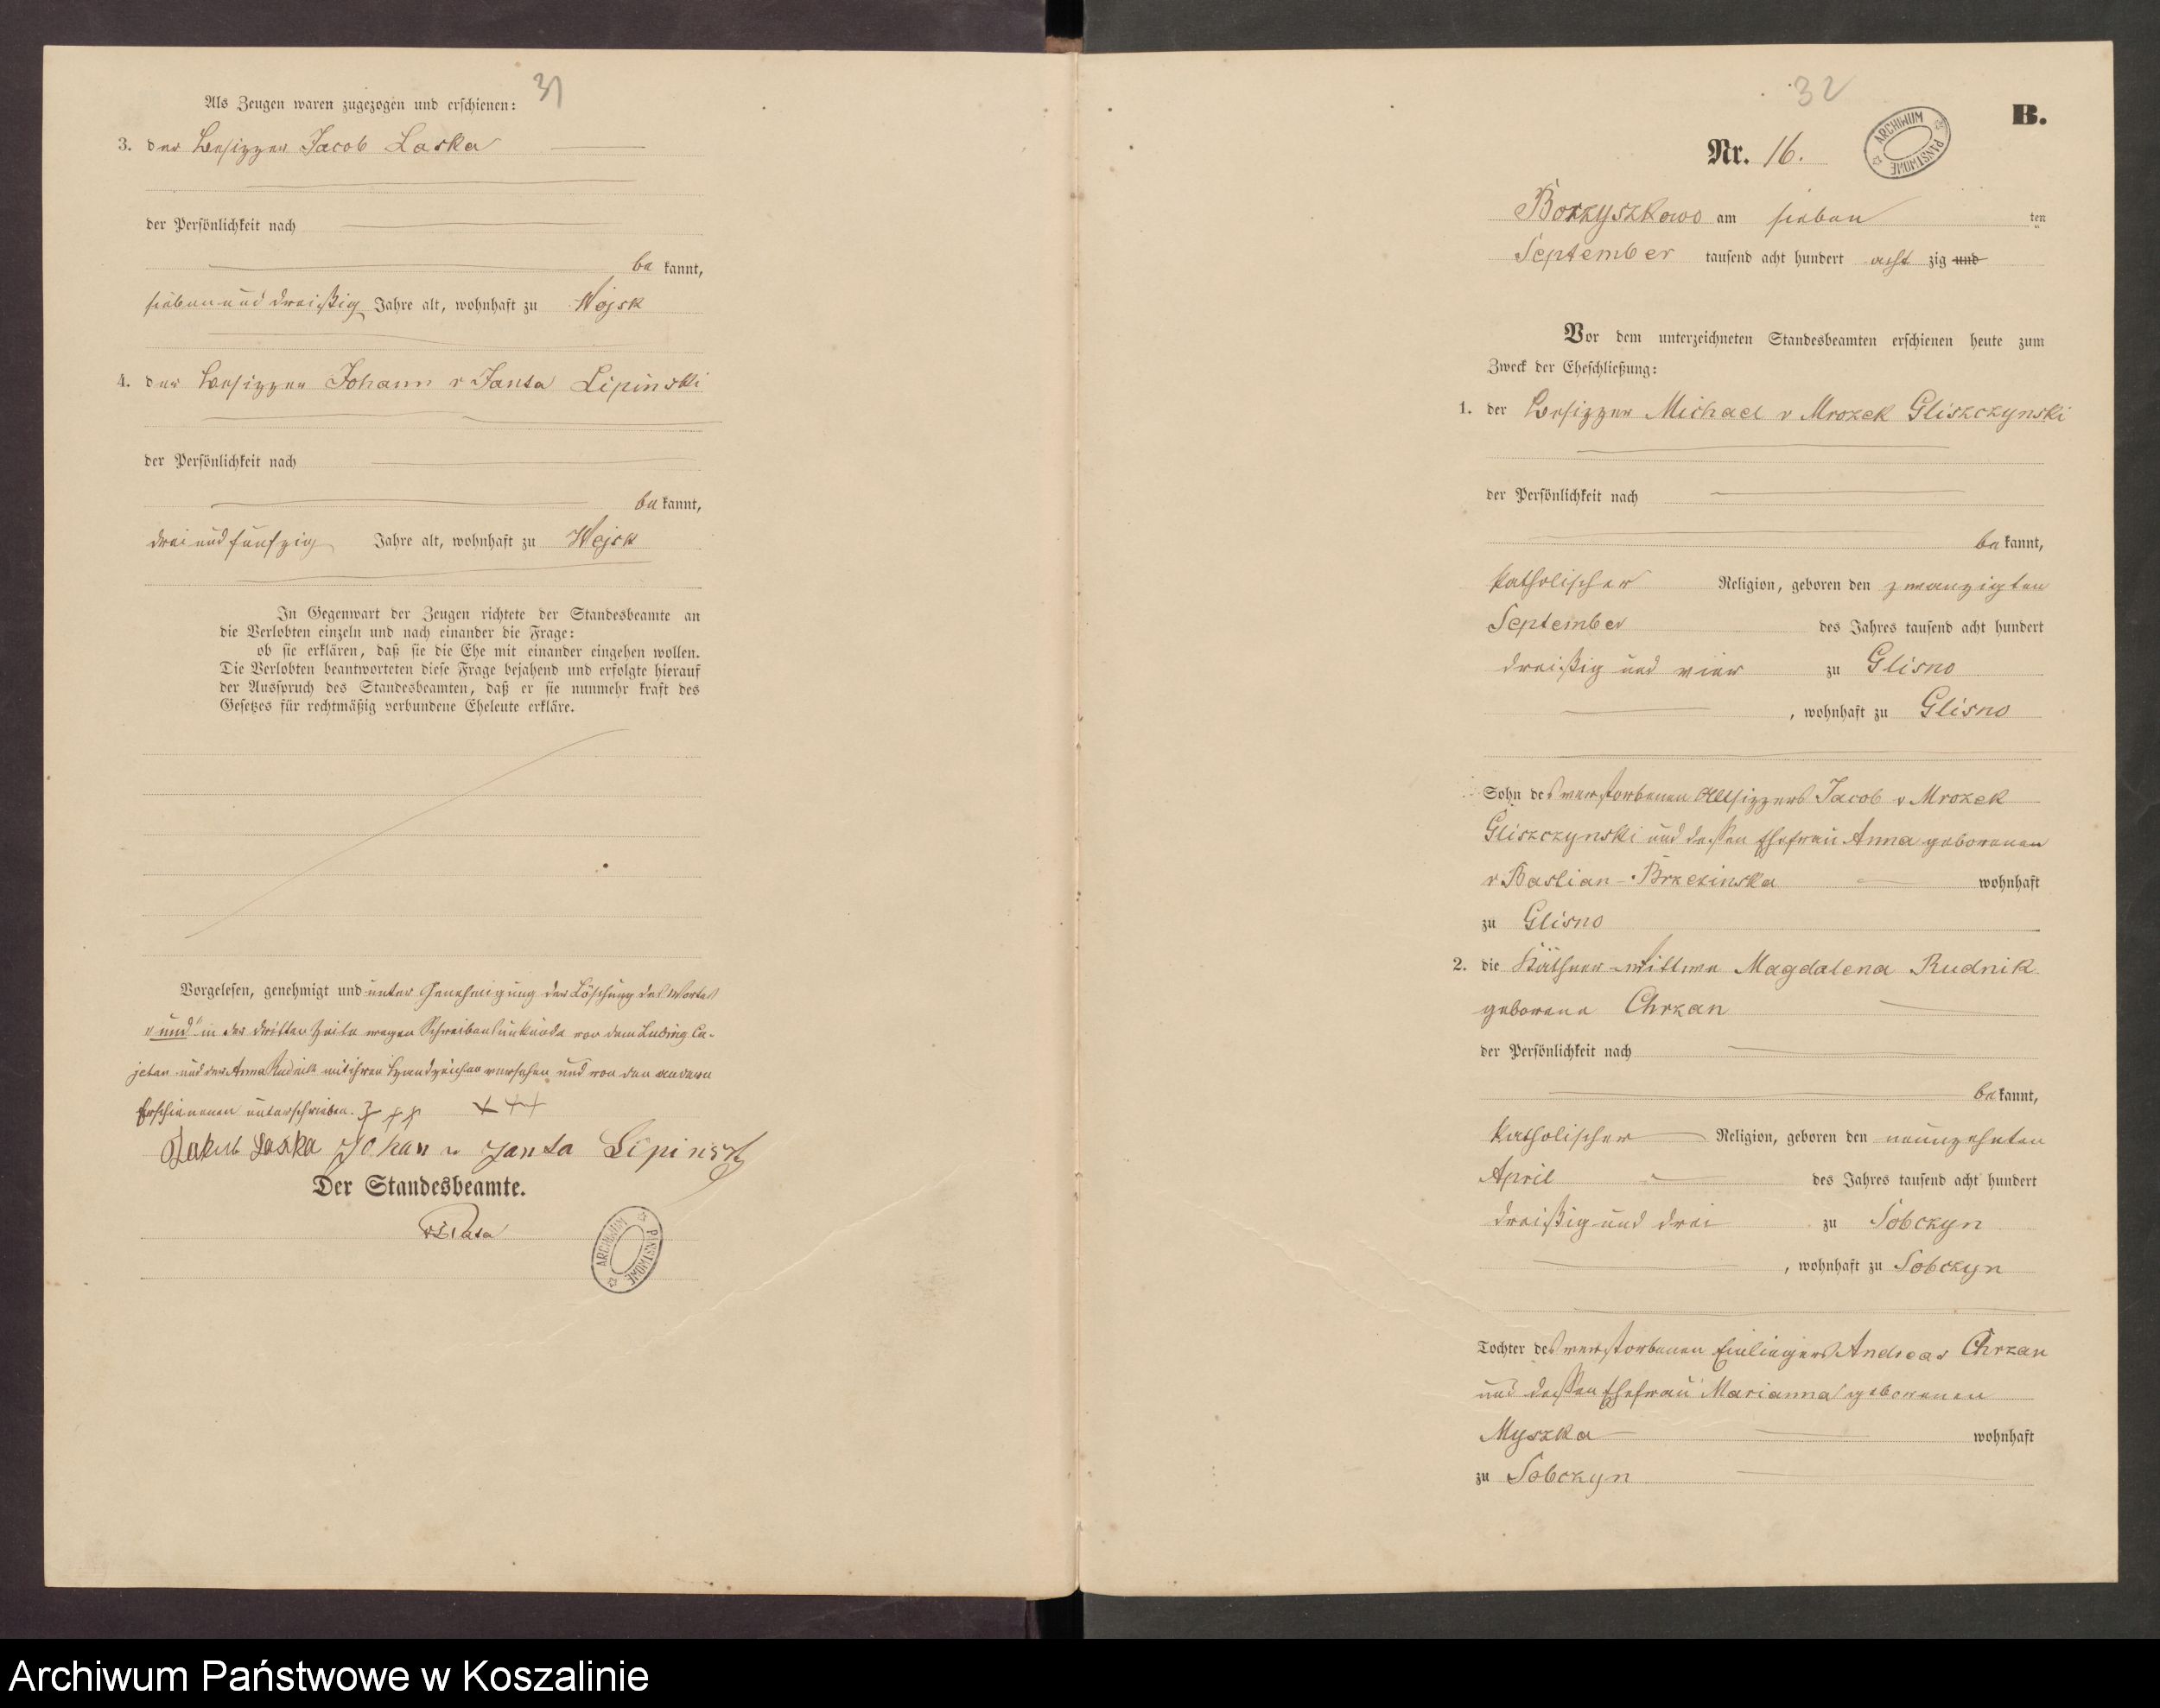 31
Als Zeugen waren zugezogen und erschienen:
3. der Besitzer Jacob Laska
der Persönlichkeit nach
be kannt,
sieben und dreißig Jahre alt, wohnhaft zu Wojsk
4. der Besitzer Johann v Janta Lipinski
der Persönlichkeit nach
be kannt,
drei und fünfzig Jahre alt, wohnhaft zu Wojsk
In Gegenwart der Zeugen richtete der Standesbeamte an
die Verlobten einzeln und nach einander die Frage:
ob sie erklären, daß sie die Ehe mit einander eingehen wollen.
Die Verlobten beantworteten diese Frage bejahend und erfolgte hierauf
der Ausspruch des Standesbeamten, daß er sie nunmehr kraft des
Gesetzes für rechtmäßig verbundene Eheleute erkläre.
Vorgelesen, genehmigt und unter Genehmigung der Löschung des Wortes
"und" in der dritten Zeile wegen Schreibensunkunde von dem Ca-
jetan und der Anna Rudnik mit ihren Handzeichen versehen und von den andern
Erschienenen unterschrieben. +++ +++
Jakub Laska Johan v Janta Lipinski
Der Standesbeamte.
ARCHIWUM PAŃSTWOWE
32
B.
Nr. 16.
ARCHIWUM PAŃSTWOWE
Borzyszkowo am sieben ten
September tausend acht hundert acht zig und
Vor dem unterzeichneten Standesbeamten erschienen heute zum
Zweck der Eheschließung:
1. der Besitzer Michael v Mrozek Gliszczynski
der Persönlichkeit nach
be kannt,
katholischer Religion, geboren den zwanzigten
September des Jahres tausend acht hundert
dreißig und vier zu Glisno
, wohnhaft zu Glisno
Sohn des verstorbenen Altsitzers Jacob v Mrozek
Gliszczynski und dessen Ehefrau Anna geborenen
v Bastian-Brzezinska wohnhaft
zu Glisno
2. die Käthner-Wittwe Magdalena Rudnik
geborene Chrzan
der Persönlichkeit nach
be kannt,
katholischer Religion, geboren den neunzehnten
April des Jahres tausend acht hundert
dreißig und drei zu Sobczyn
, wohnhaft zu Sobczyn
Tochter des verstorbenen Einliegers Andreas Chrzan
und dessen Ehefrau Marianna geborenen
Myszka wohnhaft
zu Sobczyn
Archiwum Państwowe w Koszalinie